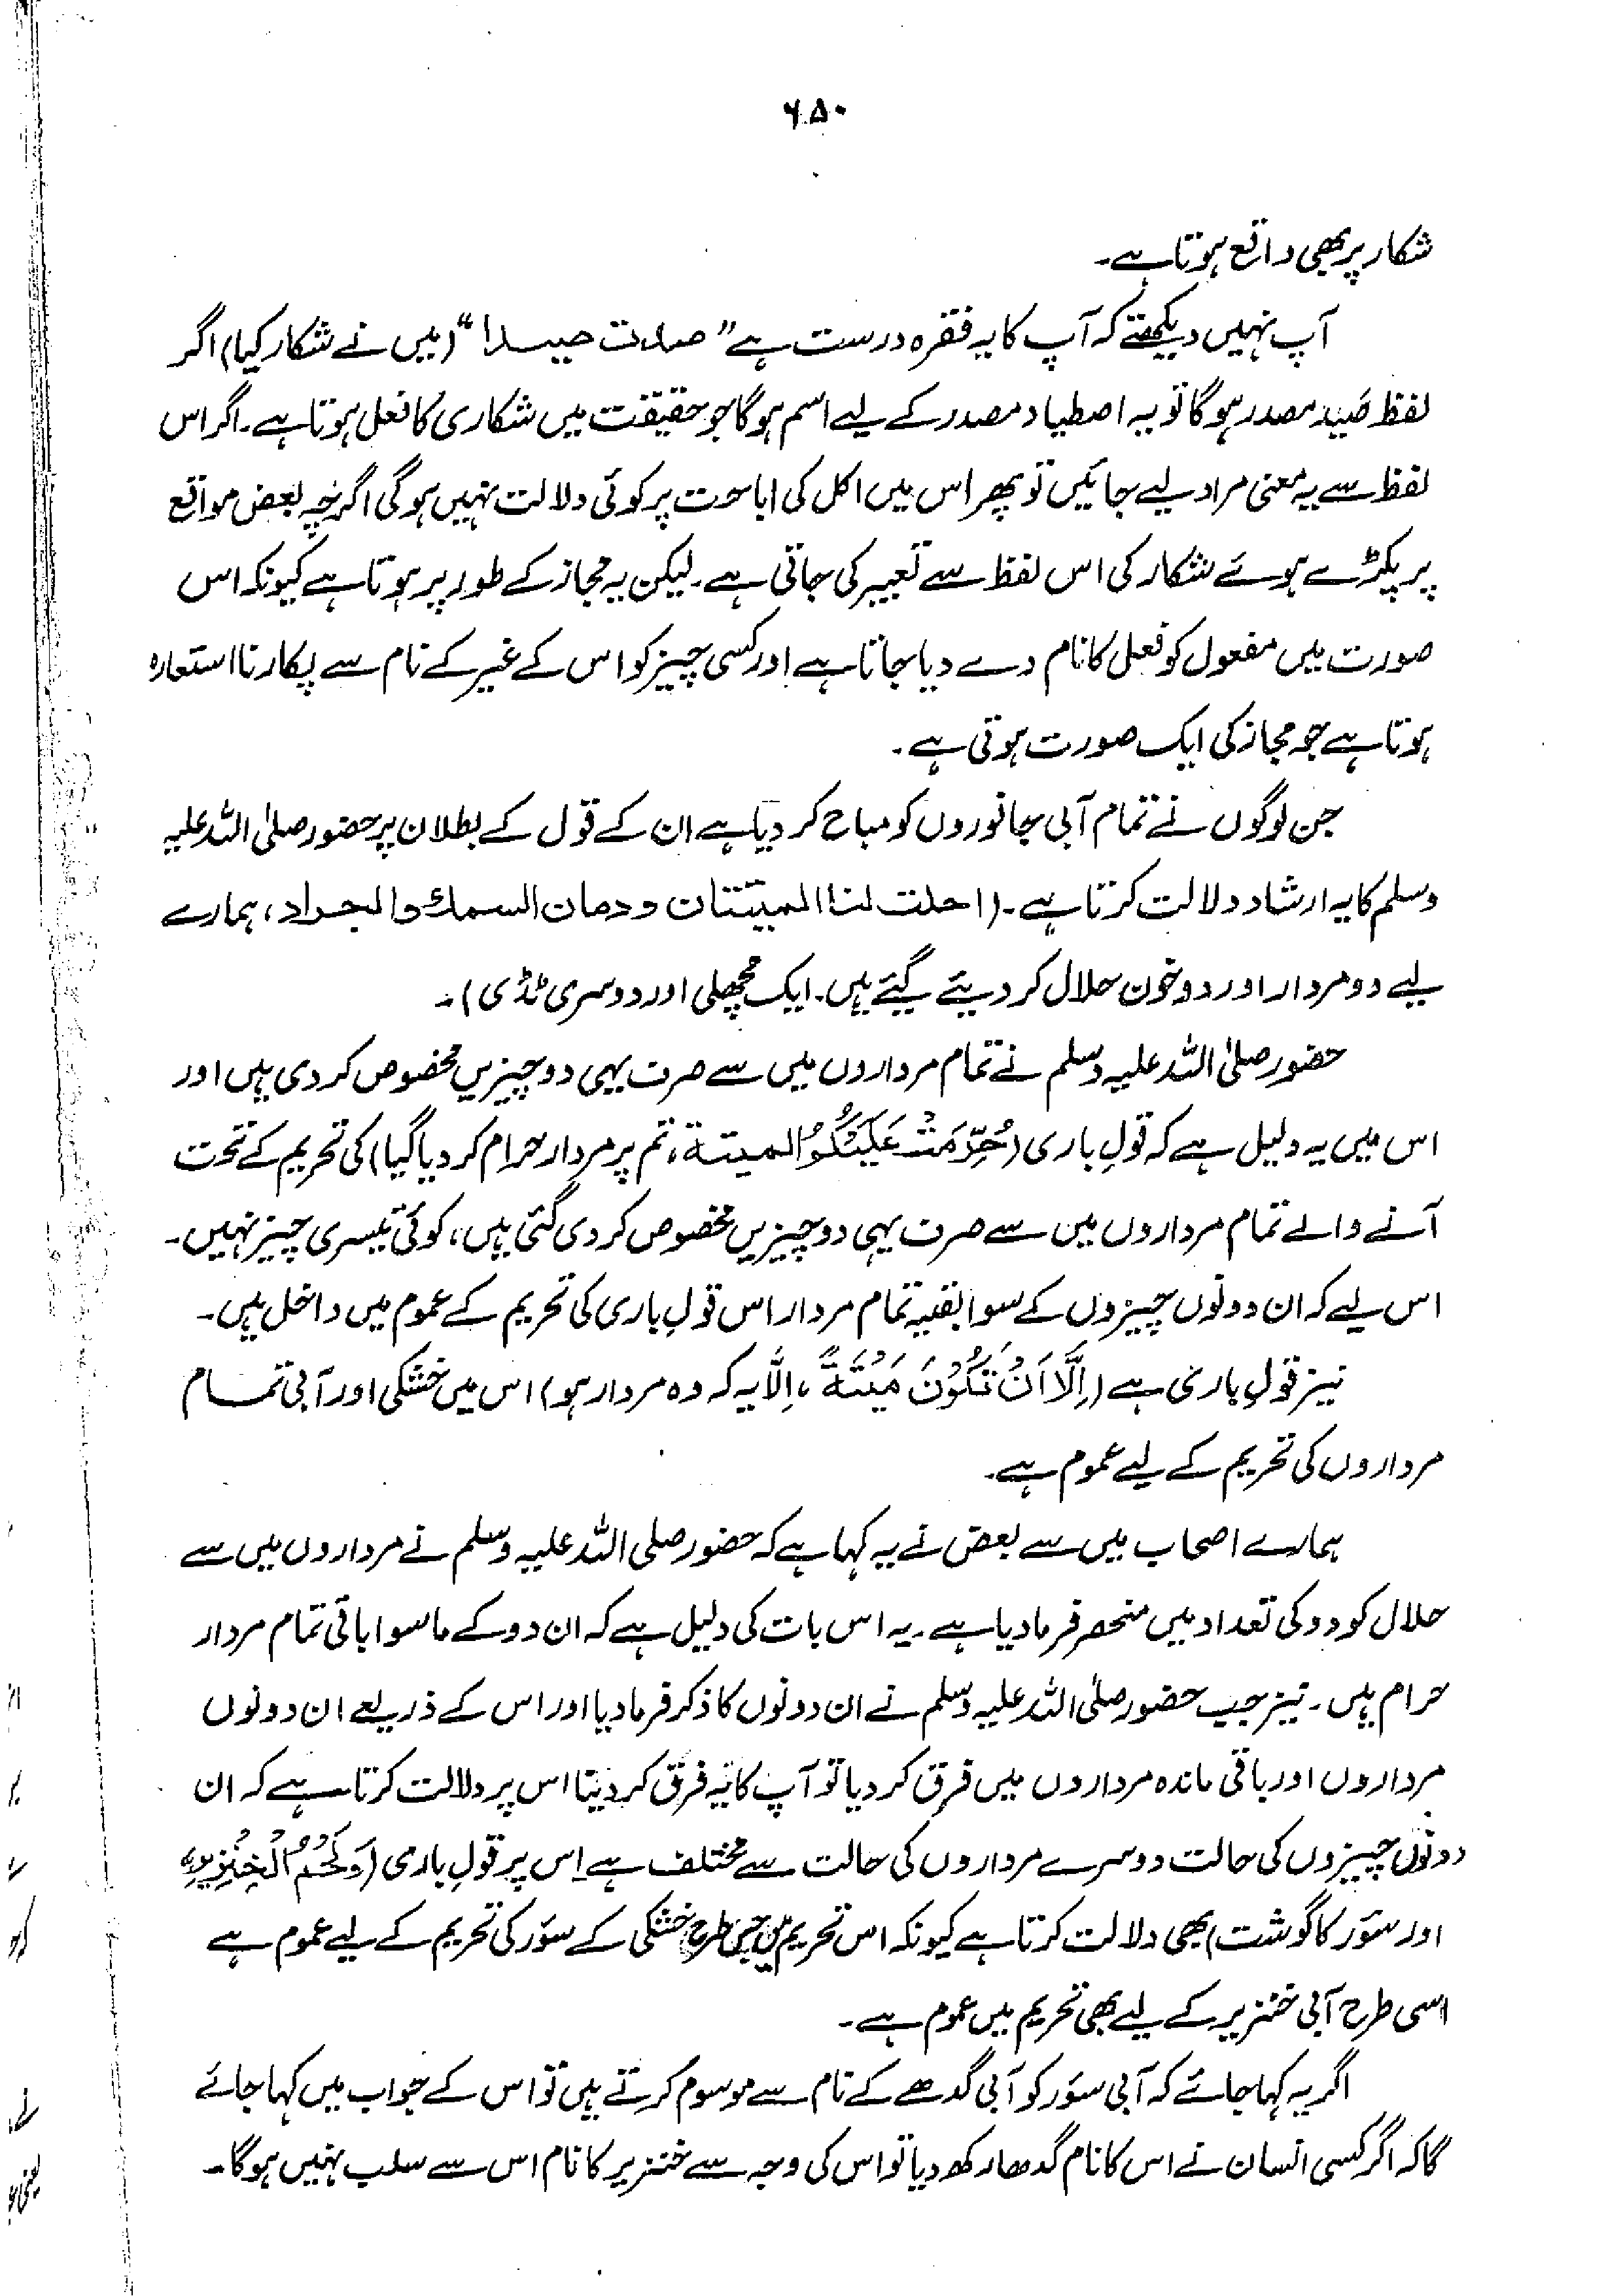 ۶۵۰
شکار پر بھی واقع ہوتا ہے۔
آپ نہیں دیکھتے کہ آپ کا یہ فقرہ درست ہے "صدت صیدا" (میں نے شکار کیا) اگر
لفظ صَید مصدر ہوگا تو یہ اصطیاد مصدر کے لیے اسم ہوگا جو حقیقت میں شکاری کا فعل ہوتا ہے۔ اگر اس
لفظ سے یہ معنی مراد لیے جائیں تو پھر اس میں اکل کی اباحت پر کوئی دلالت نہیں ہوگی اگرچہ بعض مواقع
پر پکڑے ہوئے شکار کی اس لفظ سے تعبیر کی جاتی ہے۔ لیکن یہ مجاز کے طور پر ہوتا ہے کیونکہ اس
صورت میں مفعول کو فعل کا نام دے دیا جاتا ہے اور کسی چیز کو اس کے غیر کے نام سے پکارنا استعارہ
ہوتا ہے جو مجاز کی ایک صورت ہوتی ہے۔
جن لوگوں نے تمام آبی جانوروں کو مباح کر دیا ہے ان کے قول کے بطلان پر حضور صلی اللہ علیہ
وسلم کا یہ ارشاد دلالت کرتا ہے۔ (احلت لنا المیتتان ودمان السمک والجراد، ہمارے
لیے دو مردار اور دو خون حلال کر دیئے گیئے ہیں۔ ایک مچھلی اور دوسری ٹڈی)۔
حضور صلی اللہ علیہ وسلم نے تمام مرداروں میں سے صرف یہی دو چیزیں مخصوص کر دی ہیں اور
اس میں یہ دلیل ہے کہ قولِ باری (حُرِّمَتْ عَلَیْکُمُ المیتۃ، تم پر مردار حرام کر دیا گیا) کی تحریم کے تحت
آنے والے تمام مرداروں میں سے صرف یہی دو چیزیں مخصوص کر دی گئی ہیں، کوئی تیسری چیز نہیں۔
اس لیے کہ ان دونوں چیزوں کے سوا بقیہ تمام مردار اس قولِ باری کی تحریم کے عموم میں داخل ہیں۔
نیز قولِ باری ہے (اِلَّا اَنْ تَکُوْنَ مَیْتَۃً، اِلَّا یہ کہ وہ مردار ہو) اس میں خشکی اور آبی تمام
مرداروں کی تحریم کے لیے عموم ہے۔
ہمارے اصحاب میں سے بعض نے یہ کہا ہے کہ حضور صلی اللہ علیہ وسلم نے مرداروں میں سے
حلال کو دو کی تعداد میں منحصر فرما دیا ہے۔ یہ اس بات کی دلیل ہے کہ ان دو کے ماسوا باقی تمام مردار
حرام ہیں۔ نیز جب حضور صلی اللہ علیہ وسلم نے ان دونوں کا ذکر فرما دیا اور اس کے ذریعے ان دونوں
مرداروں اور باقی ماندہ مرداروں میں فرق کر دیا تو آپ کا یہ فرق کر دینا اس پر دلالت کرتا ہے کہ ان
دونوں چیزوں کی حالت دوسرے مرداروں کی حالت سے مختلف ہے اس پر قولِ باری (وَلَحْمُ الْخِنْزِیْرِ،
اور سؤر کا گوشت) بھی دلالت کرتا ہے کیونکہ اس تحریم میں جس طرح خشکی کے سؤر کی تحریم کے لیے عموم ہے
اسی طرح آبی خنزیر کے لیے بھی تحریم میں عموم ہے۔
اگر یہ کہا جائے کہ آبی سؤر کو آبی گدھے کے نام سے موسوم کرتے ہیں تو اس کے جواب میں کہا جائے
گا کہ اگر کسی انسان نے اس کا نام گدھا رکھ دیا تو اس کی وجہ سے خنزیر کا نام اس سے سلب نہیں ہوگا۔